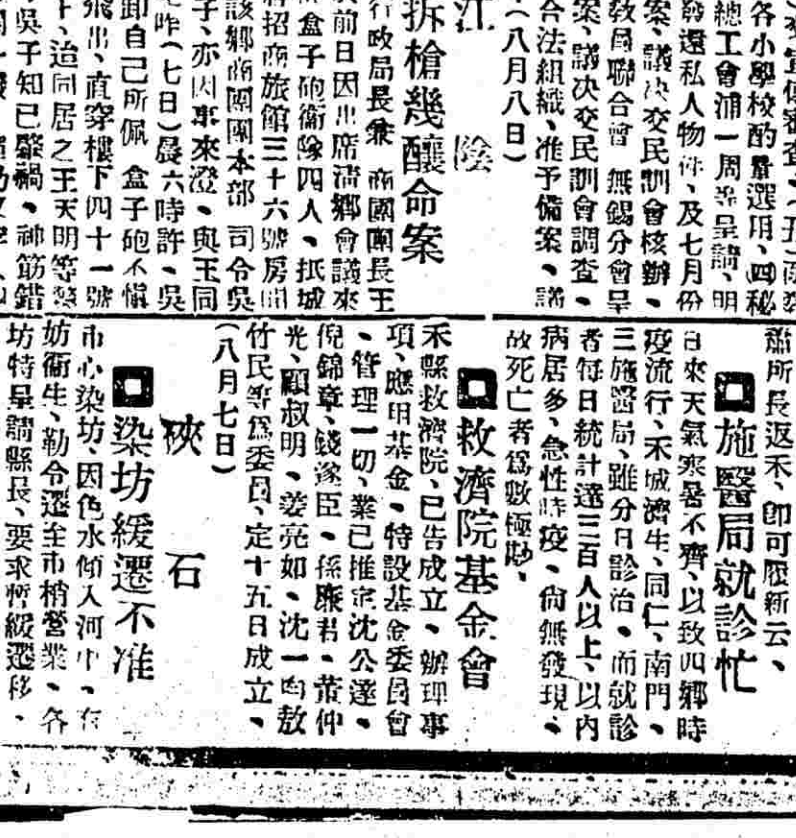 各小學校酌量選用、四秘
總工會浦一周等呈請、明
發還私人物件、及七月份
案、議決交民訓會核辦、
敎員聯合會 無錫分會呈
案、議決交民訓會調查、
合法組織、准予備案、議
(八月八日)
江 陰
拆槍幾釀命案
行政局長兼 商團團長王
前日因出席淸鄕會議來
盒子砲衛隊四人、抵城
招商旅館三十六號房間
該鄕商團團本部 司令吳
子、亦因事來澄、與王同
昨(七日)晨六時許、吳
卸自己所佩 盒子砲不愼
飛出、直穿樓下四十一號
下、適同居之王天明等
吳子知已肇禍、神筋錯
所長返禾、卽可履新云、
施醫局就診忙
日來天氣寒暑不齊、以致四鄕時
疫流行、禾城濟生、同仁、南門、
三施醫局、雖分日診治、而就診
者每日統計達三百人以上、以內
病居多、急性時疫、尙無發現、
故死亡者爲數極尠、
救濟院基金會
禾縣救濟院、已吿成立、辦理事
項、應用基金、特設基金委員會
、管理一切、業已推定沈公達、
倪錦章、錢遂臣、孫廉君、黃仲
光、顧叔明、姜亮如、沈一 敖
竹民等爲委員、定十五日成立、
(八月七日)
硤 石
染坊緩遷不准
市心染坊、因色水傾入河中、有
妨衛生、勒令遷至市梢營業、各
坊特呈請縣長、要求暫緩遷移、